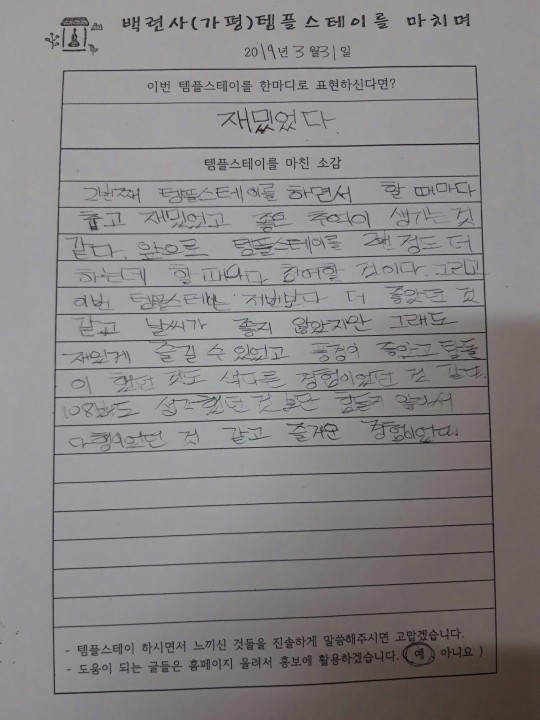 백련사(가평)템플스테이를 마치며
2019년 3월31일
이번 템플스테이를 한마디로 표현하신다면?
재밌었다.
템플스테이를 마친 소감
2번째 템플스테이를 하면서 할 때마다
재밌었고 좋은 추억이 생기는 것
같다. 앞으로 템플스테이를 2번 정도 더
하는데 할 때마다 것이다. 그리고
이번 템플스테이는 저번보다 더 좋았던 것
같고 날씨가 좋지 않았지만 그래도
재밌게 즐길 수 있었고 풍경이 좋았고 탑돌
이 했던 것도 색다른 경험이었던 것 같다.
108배도 생각했던 것 보단 힘들지 않아서
다행이었던 것 같고 즐거운 경험이었다.
- 템플스테이 하시면서 느끼신 것들을 진솔하게 말씀해주시면 고맙겠습니다.
- 도움이 되는 글들은 홈페이지 올려서 홍보에 활용하겠습니다. ( 예 아니요 )